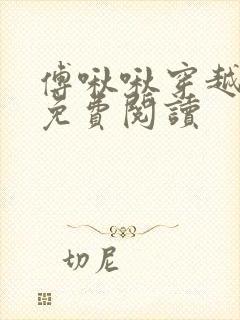 傅啾啾穿越
免費閱讀
切尼